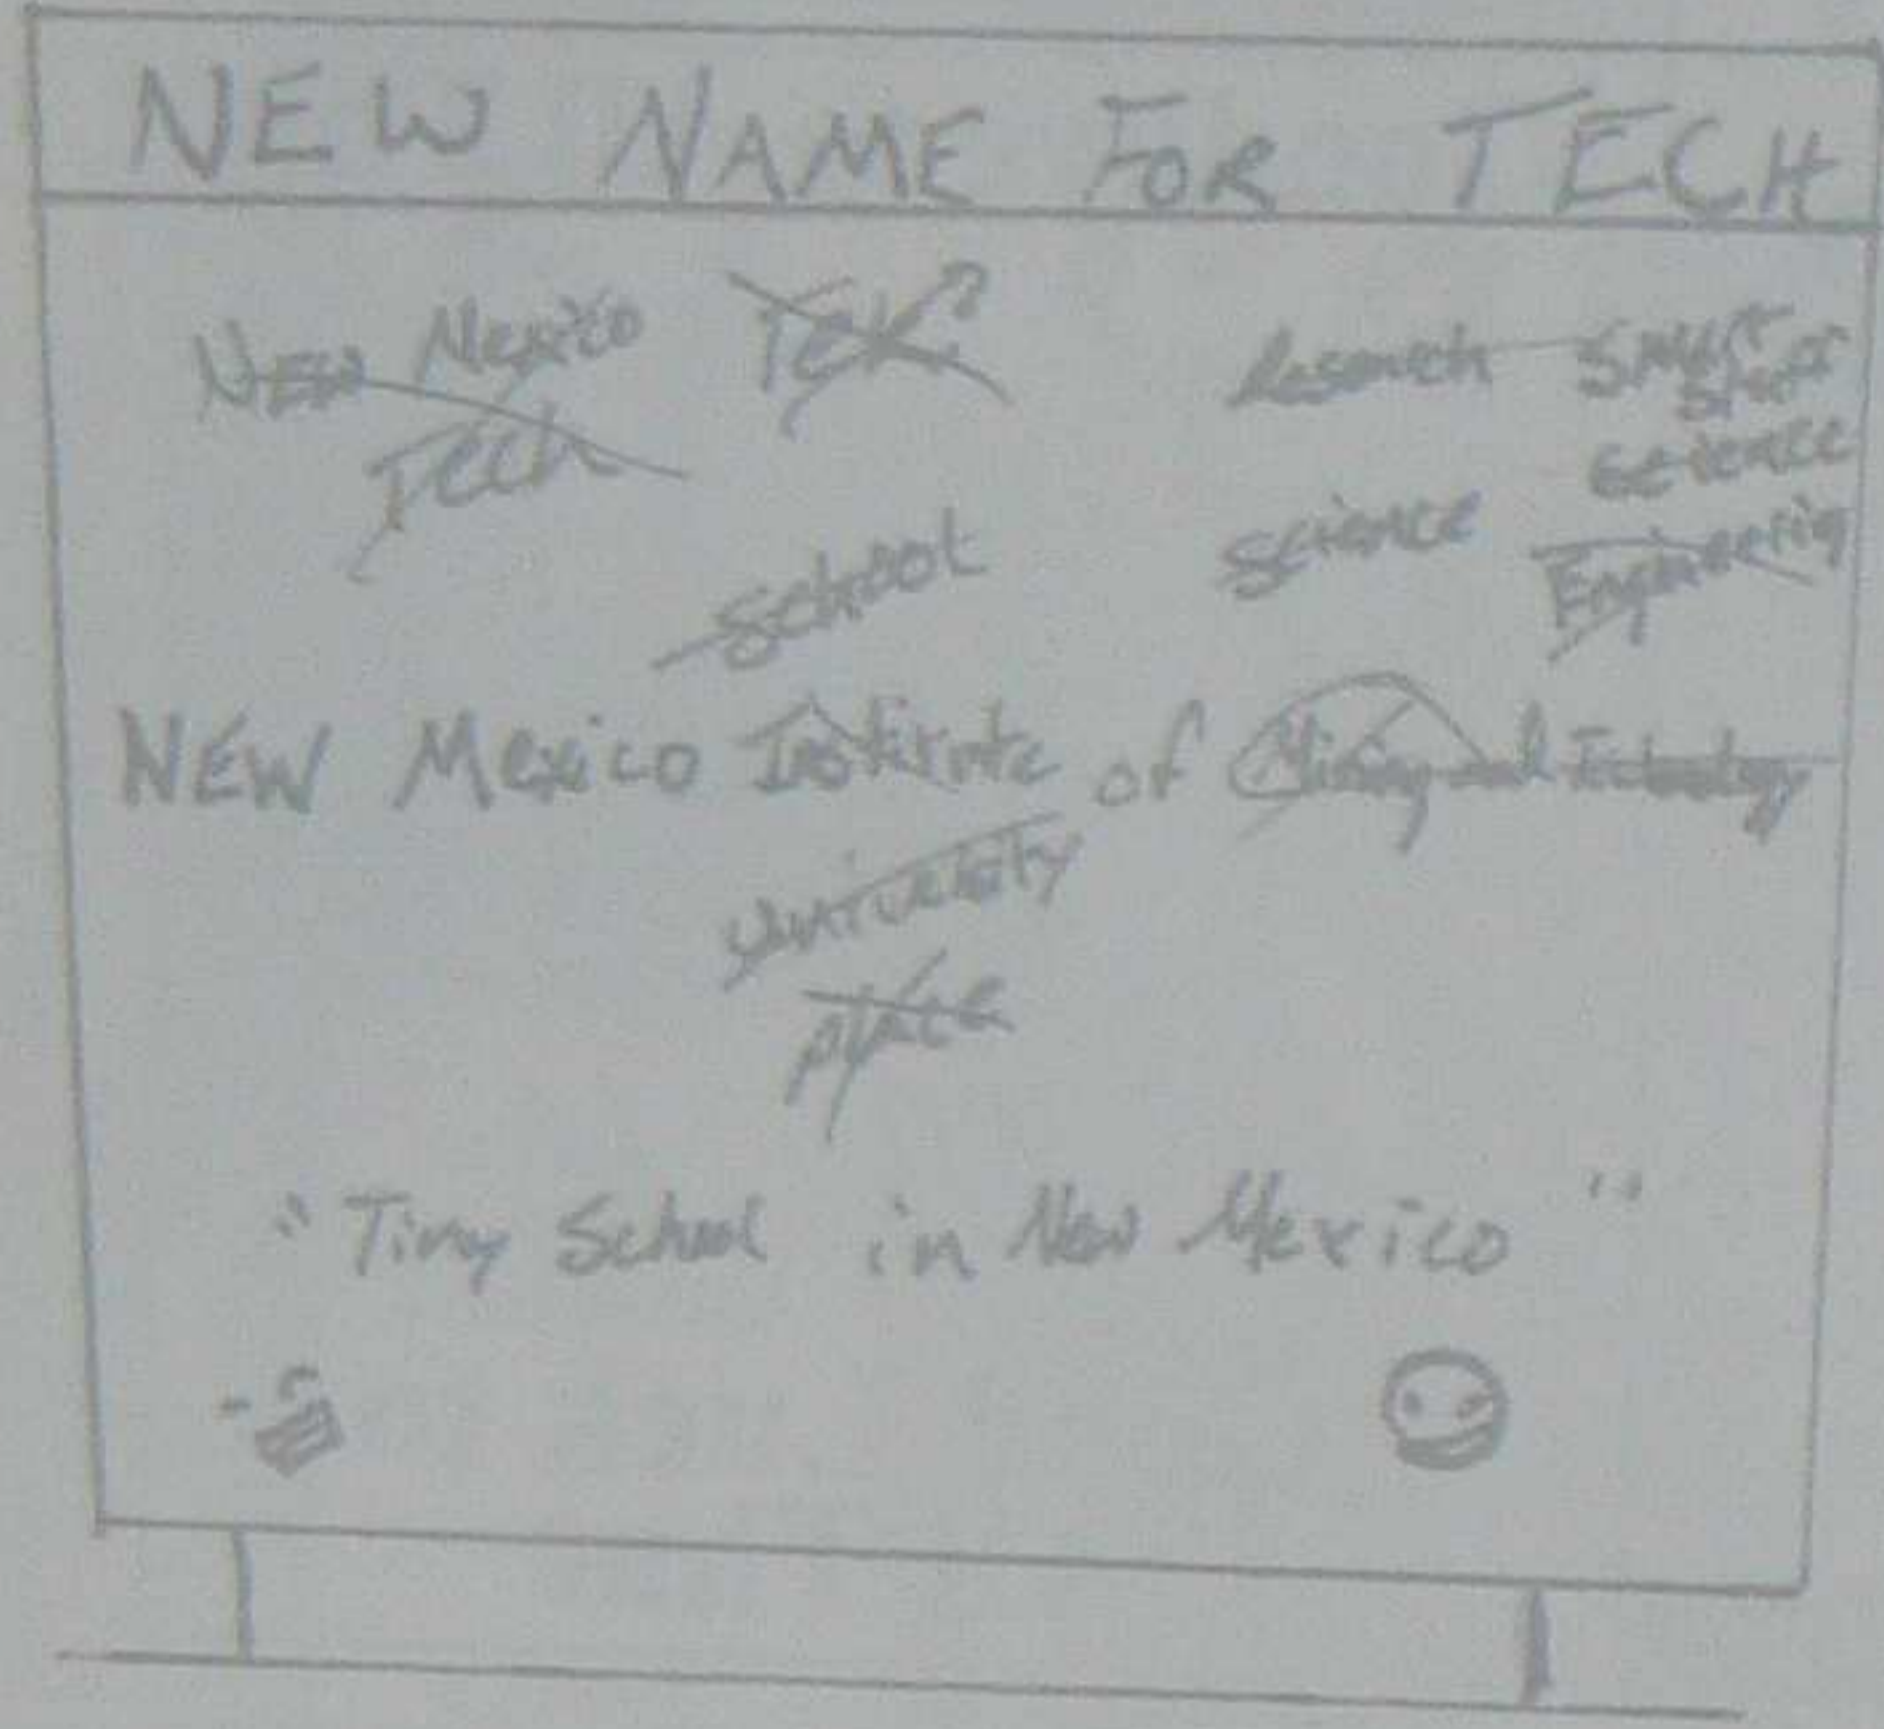 NEW NAME FOR TECH
New Mexico Tech
TEK?
Research
SMART STUFF
Science
Science
Engineering
School
NEW Mexico Institute of Mining and Technology
University
place
"Tiny School in New Mexico"